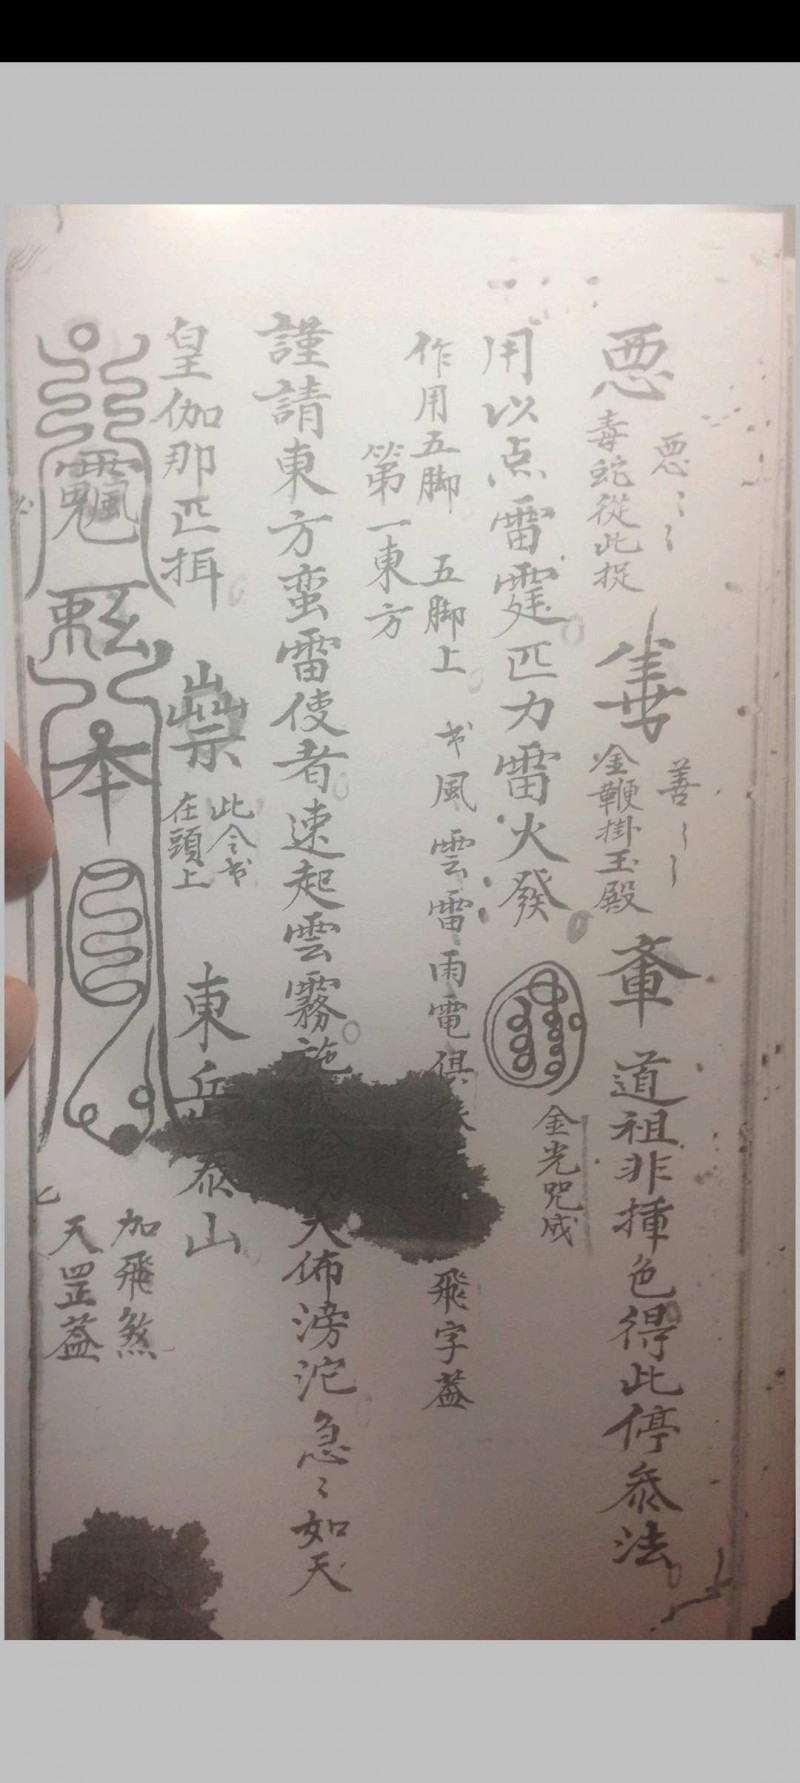 悪 悪〻〻 毒蛇從此捉 善〻〻 金鞭掛玉殿 道祖非揰色得此停叅法
用以点雷霆匹力雷火發 金光咒成
作用五脚 五脚上 书風雲雷雨電俱 飛字蓋
第一東方
謹請東方蛮雷使者速起雲霧施 大佈滂沱急〻如天
皇伽那匹揖 此令书在頭上 東岳泰山
飄 本
加飛煞
天罡蓋